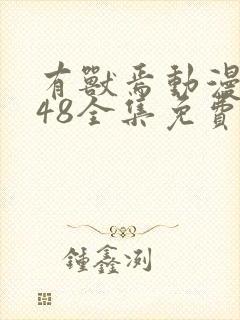 有獸焉動漫
48全集免費
鍾鑫浰